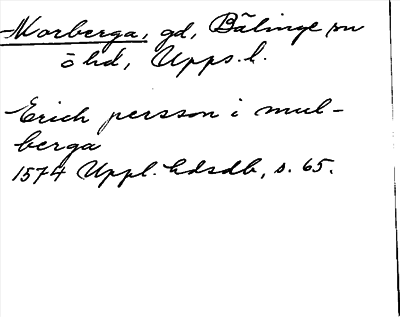 Morberga, gd, Bälinge sn
ö hd, Upps. l.
Erich persson i mul-
berga
1574 Uppl. hdsdb, s. 65.